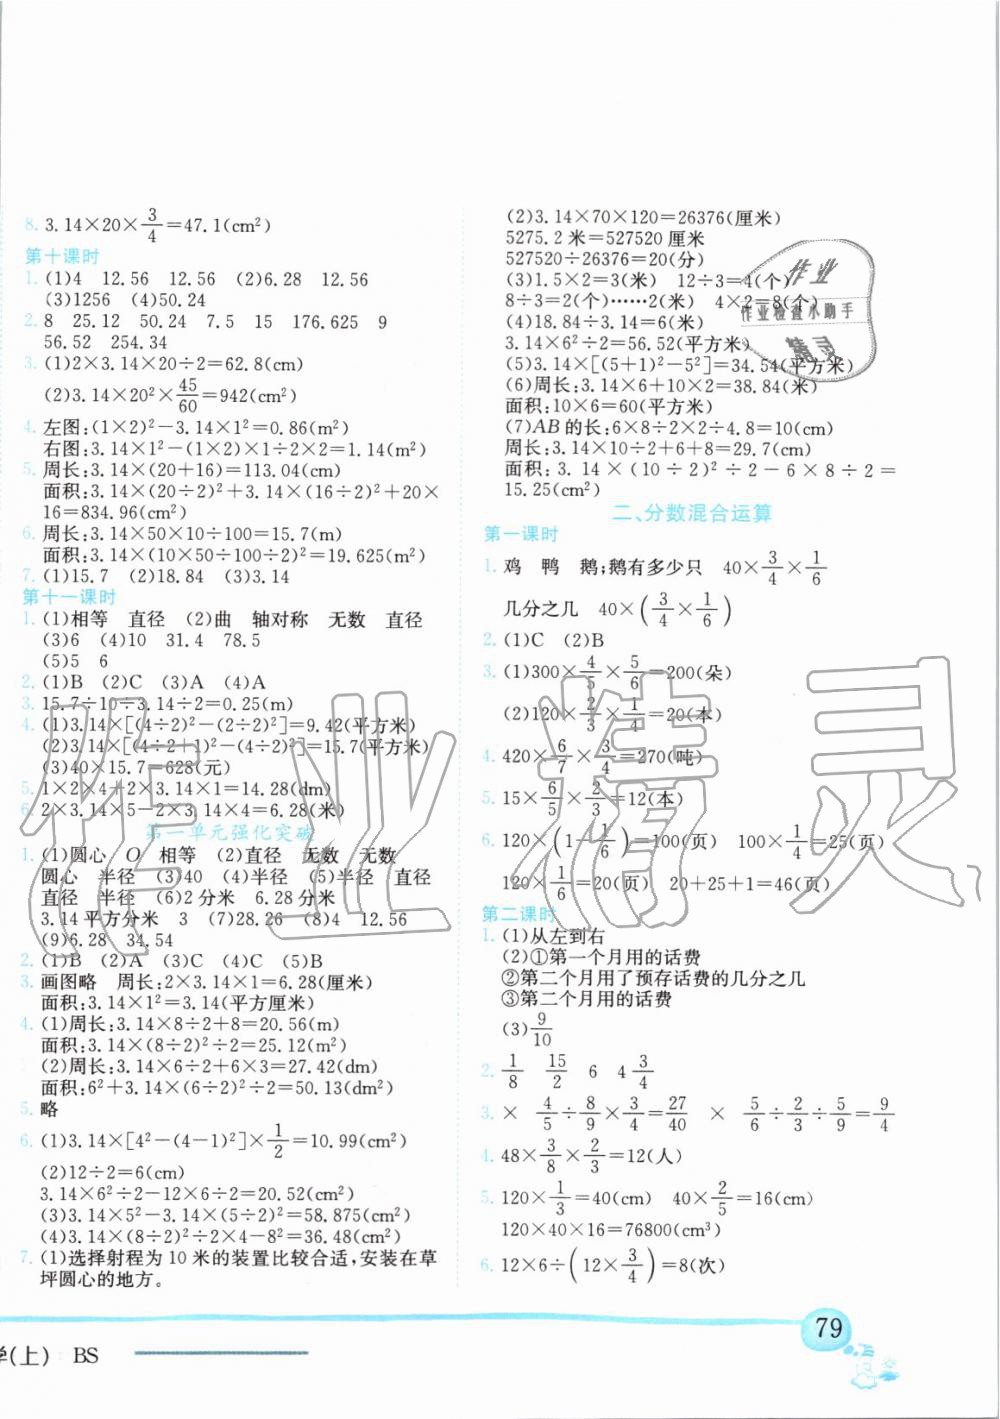 8. 3.14×20×3/4=47.1(cm²)
第十课时
1. (1)4 12.56 12.56 (2)6.28 12.56
(3)1256 (4)50.24
2. 8 25.12 50.24 7.5 15 176.625 9
56.52 254.34
3. (1)2×3.14×20÷2=62.8(cm)
(2)3.14×20²×45/60=942(cm²)
4. 左图:(1×2)²-3.14×1²=0.86(m²)
右图:3.14×1²-(1×2)×1÷2×2=1.14(m²)
5. 周长:3.14×(20+16)=113.04(cm)
面积:3.14×(20÷2)²+3.14×(16÷2)²+20×
16=834.96(cm²)
6. 周长:3.14×50×10÷100=15.7(m)
面积:3.14×(10×50÷100÷2)²=19.625(m²)
7. (1)15.7 (2)18.84 (3)3.14
第十一课时
1. (1)相等 直径 (2)曲 轴对称 无数 直径
(3)6 (4)10 31.4 78.5
(5)5 6
2. (1)B (2)C (3)A (4)A
3. 15.7÷10÷3.14÷2=0.25(m)
4. (1)3.14×[(4÷2)²-(2÷2)²]=9.42(平方米)
(2)3.14×[(4÷2+1)²-(4÷2)²]=15.7(平方米)
(3)40×15.7=628(元)
5. 1×2×4+2×3.14×1=14.28(dm)
6. 2×3.14×5-2×3.14×4=6.28(米)
第一单元强化突破
1. (1)圆心 O 相等 (2)直径 无数 无数
圆心 半径 (3)40 (4)半径 (5)半径 直径
直径 半径 (6)2分米 6.28分米
3.14平方分米 3 (7)28.26 (8)4 12.56
(9)6.28 34.54
2. (1)B (2)A (3)C (4)C (5)B
3. 画图略 周长:2×3.14×1=6.28(厘米)
面积:3.14×1²=3.14(平方厘米)
4. (1)周长:3.14×8÷2+8=20.56(m)
面积:3.14×(8÷2)²÷2=25.12(m²)
(2)周长:3.14×6÷2+6×3=27.42(dm)
面积:6²+3.14×(6÷2)²÷2=50.13(dm²)
5. 略
6. (1)3.14×[4²-(4-1)²]×1/2=10.99(cm²)
(2)12÷2=6(cm)
3.14×6²÷2-12×6÷2=20.52(cm²)
(3)3.14×5²-3.14×(5÷2)²=58.875(cm²)
(4)3.14×(8÷2)²÷2×4-8²=36.48(cm²)
7. (1)选择射程为10米的装置比较合适,安装在草
坪圆心的地方。
(2)3.14×70×120=26376(厘米)
5275.2米=527520厘米
527520÷26376=20(分)
(3)1.5×2=3(米) 12÷3=4(个)
8÷3=2(个)……2(米) 4×2=8(个)
(4)18.84÷3.14=6(米)
3.14×6²÷2=56.52(平方米)
(5)3.14×[(5+1)²-5²]=34.54(平方米)
(6)周长:3.14×6+10×2=38.84(米)
面积:10×6=60(平方米)
(7)AB的长:6×8÷2×2÷4.8=10(cm)
周长:3.14×10÷2+6+8=29.7(cm)
面积:3.14×(10÷2)²÷2-6×8÷2=
15.25(cm²)
二、分数混合运算
第一课时
1. 鸡 鸭 鹅;鹅有多少只 40×3/4×1/6
几分之几 40×(3/4×1/6)
2. (1)C (2)B
3. (1)300×4/5×5/6=200(朵)
(2)120×2/3×1/4=20(本)
4. 420×6/7×3/4=270(吨)
5. 15×6/5×2/3=12(本)
6. 120×(1-1/6)=100(页) 100×1/4=25(页)
120×1/6=20(页) 20+25+1=46(页)
第二课时
1. (1)从左到右
(2)①第一个月用的话费
②第二个月用了预存话费的几分之几
③第二个月用的话费
(3)9/10
2. 1/8 15/2 6 4 3/4
3. × 4/5÷8/9×3/4=27/40 × 5/6÷2/3÷5/9=9/4
4. 48×3/8×2/3=12(人)
5. 120×1/3=40(cm) 40×2/5=16(cm)
120×40×16=76800(cm³)
6. 12×6÷(12×3/4)=8(次)
作业
作业检查小助手
精灵
作业精灵
79
学(上) BS